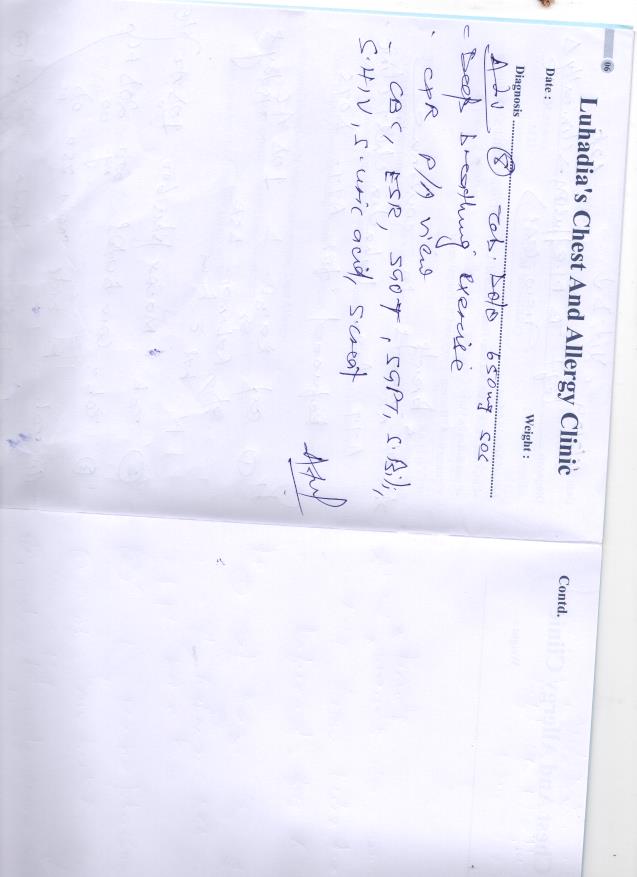 06
Luhadia's Chest And Allergy Clinic
Date :
Weight :
Diagnosis
Adv ⑧ Tab. Dolo 650mg SOS
- Deep breathing exercise
- CXR P/A view
- CBC, ESR, SGOT, SGPT, S.Bili,
S.HIV, S.uric acid, S.creat
Contd.